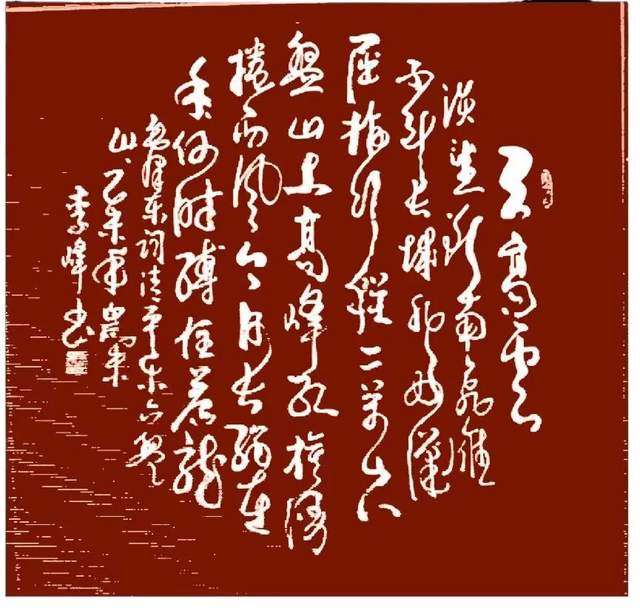 天高雲
淡望断南飞雁
不到长城非好汉
屈指行程二万六
盤山上高峰红旗漫
捲西风今日长缨在
手何时缚住苍龍
毛泽东词清平乐六盤
山乙未年
李峰书